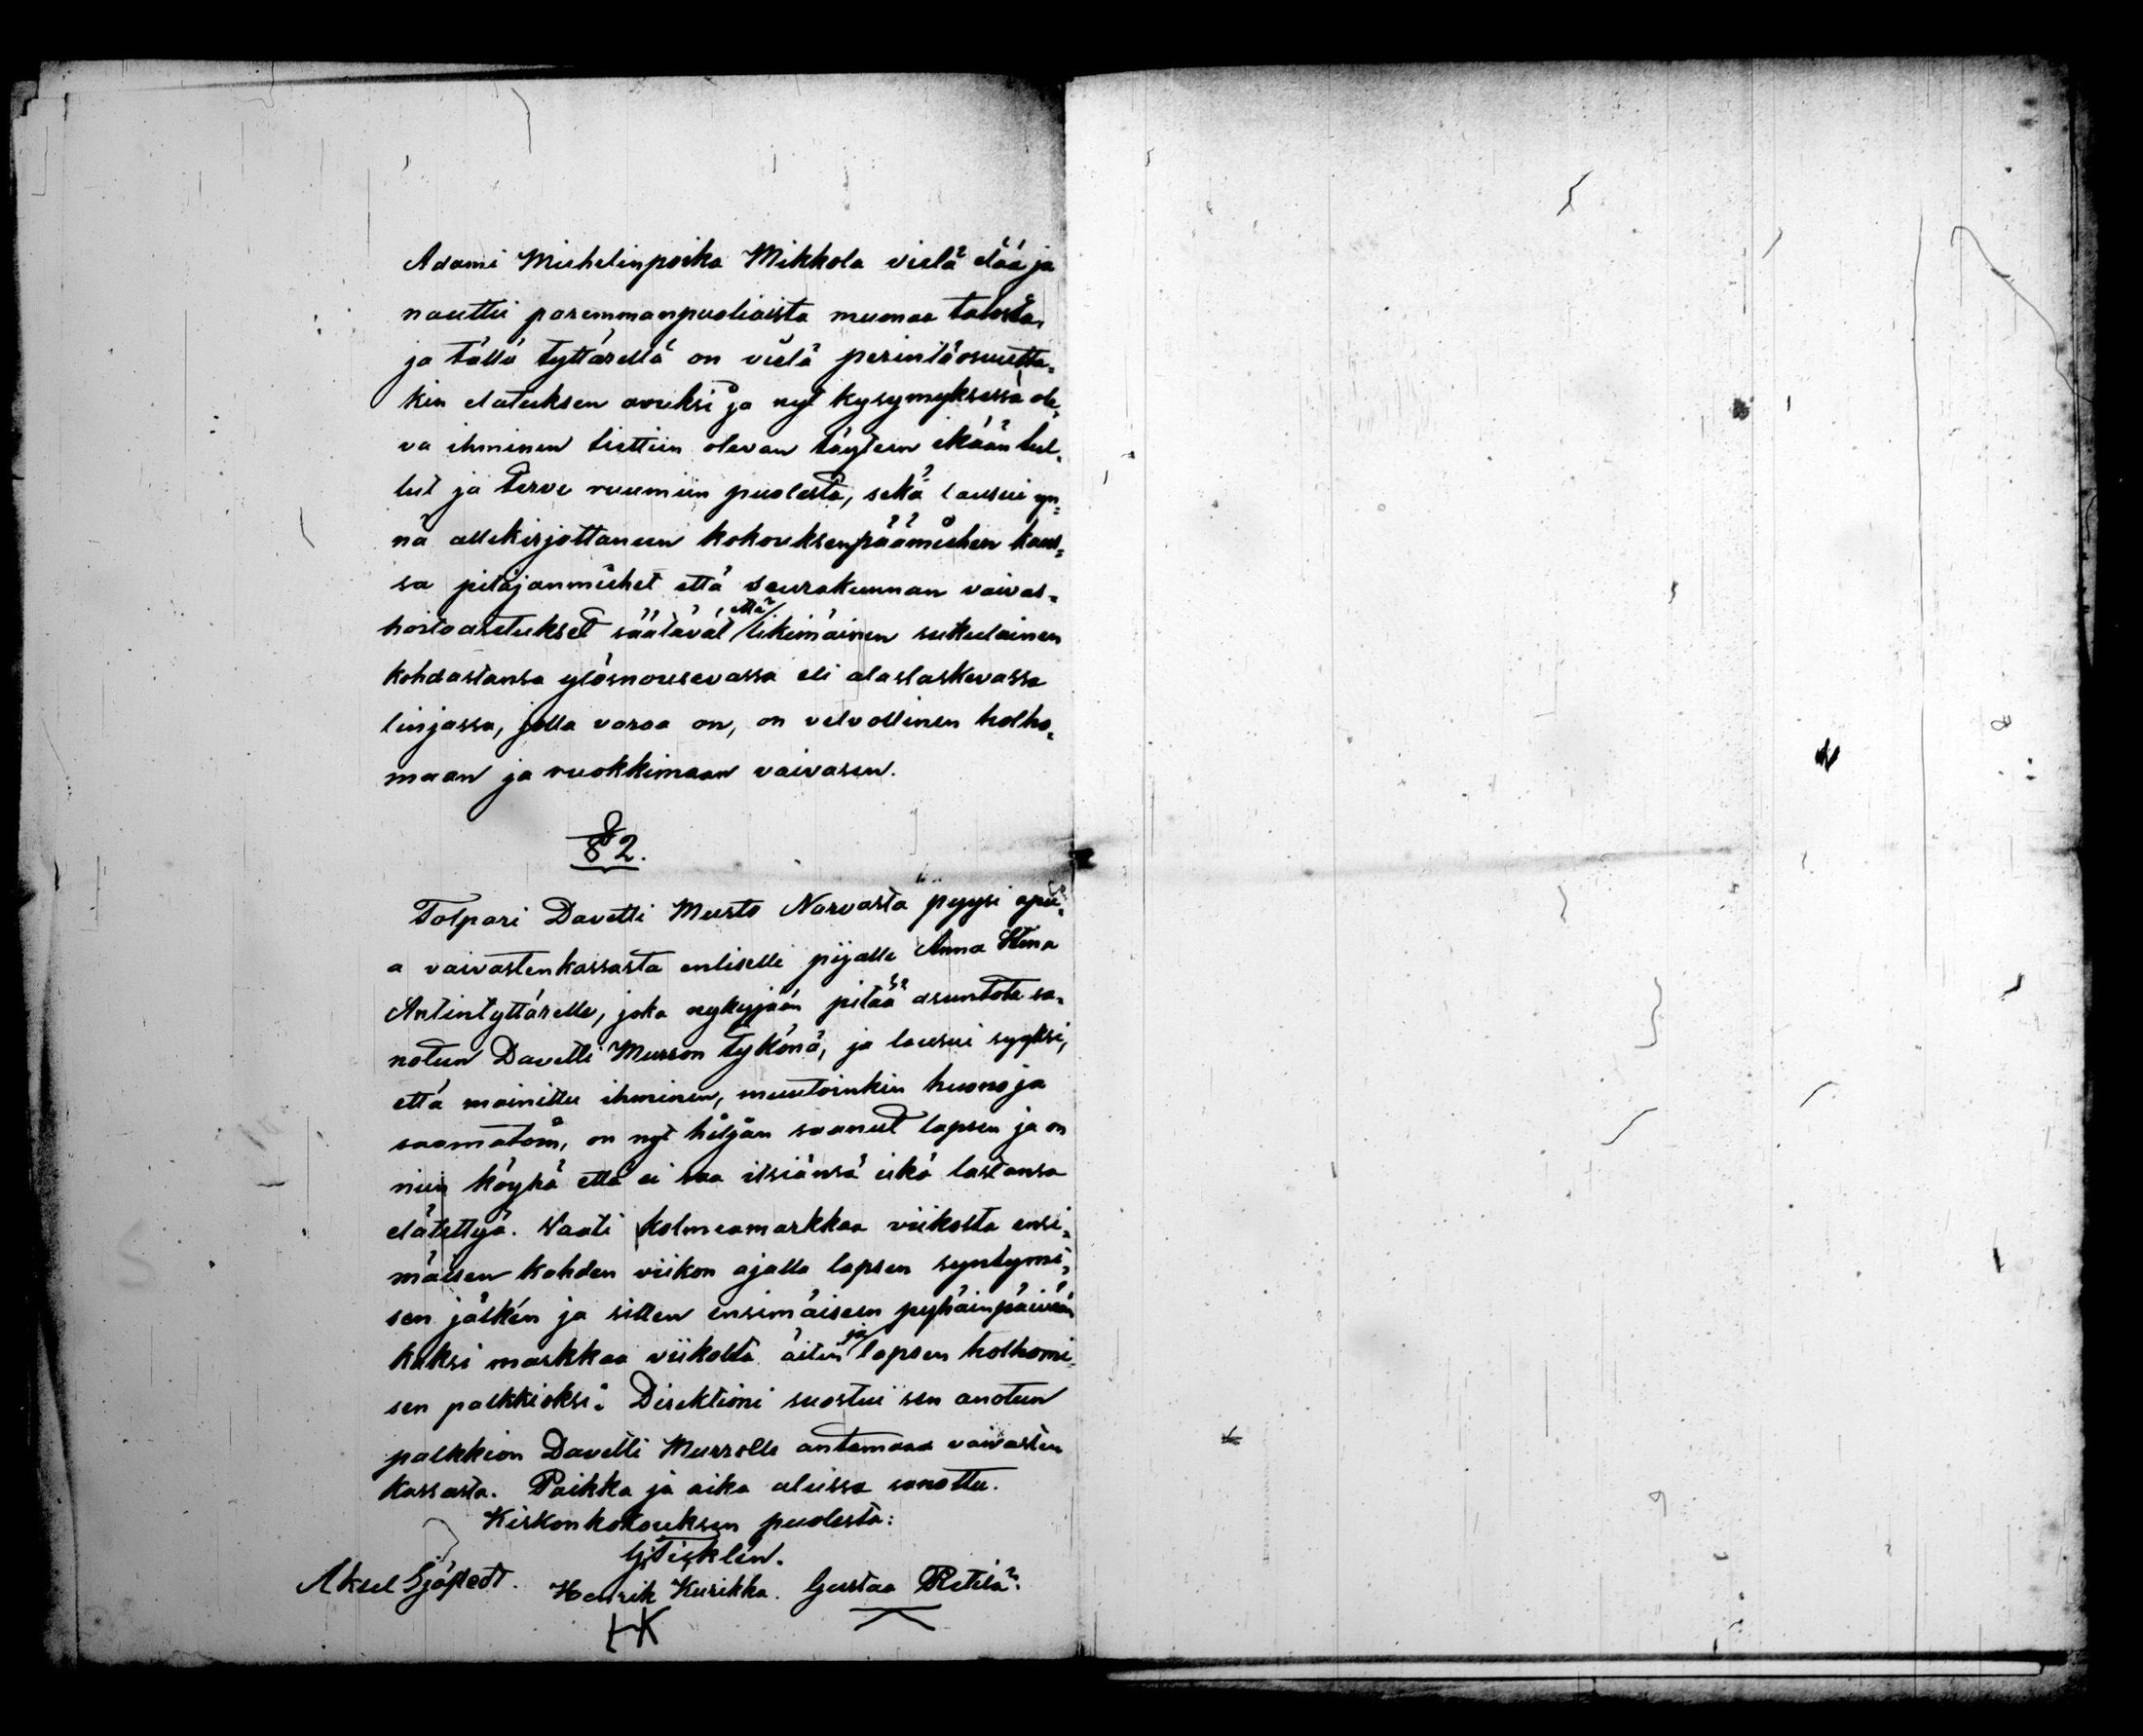 Adami Michelinpoika Mikkola vielä elää ja
nauttii paremmanpuolioista muonaa talosta,
ja tällä tyttärellä on vielä perintöosuutta-
kin elatuksen avuksi ja nyt kysymyksessä ole-
va ihminen tiettiin olevan täyteen ikään tul-
lut ja terve ruumiin puolesta, sekä lausui yn-
nä allekirjottaneen kokouksenpäämiehen kans-
sa pitäjänmiehet että seurakunnan vaivas-
hoitoasetukset säätävät että likimäinen sukulainen
kohdastansa ylösnousevassa eli alaslaskevassa
linjassa, jolla varaa on, on velvollinen holho-
maan ja ruokkimaan vaivasen.
§ 2.
Tolpari Davetti Mursto Narvasta pyysi apu-
a vaivastenkassasta entiselle piijalle Anna Stina
Antintyttärelle, joka nykyjään pitää asuntota sa-
notun Davetti Murron tykönä, ja lausui syyksi,
että mainittu ihminen, muutoinkin huono ja
saamatoin, on nyt hiljan saanut lapsen ja on
niin köyhä että ei saa itsiänsä eikä lastansa
elätettyä. Vaati kolmeamarkkaa viikolta ensi-
mäisen kahden viikon ajalla lapsen syntymi-
sen jälkén ja sitten ensimäiseen pyhäinpäivään
kaksi markkaa viikolta äitin ja lapsen holhomi-
sen palkkioksi. Direktioni suostui sen anotun
palkkion Davetti Murrolle antamaan vaivasten
kassasta. Paikka ja aika alussa sanottu.
Kirkonkokouksen puolesta:
G. Ticklén.
Aksel Sjöstedt. Henrik Kurikka. Gustaa Retilä.
HK